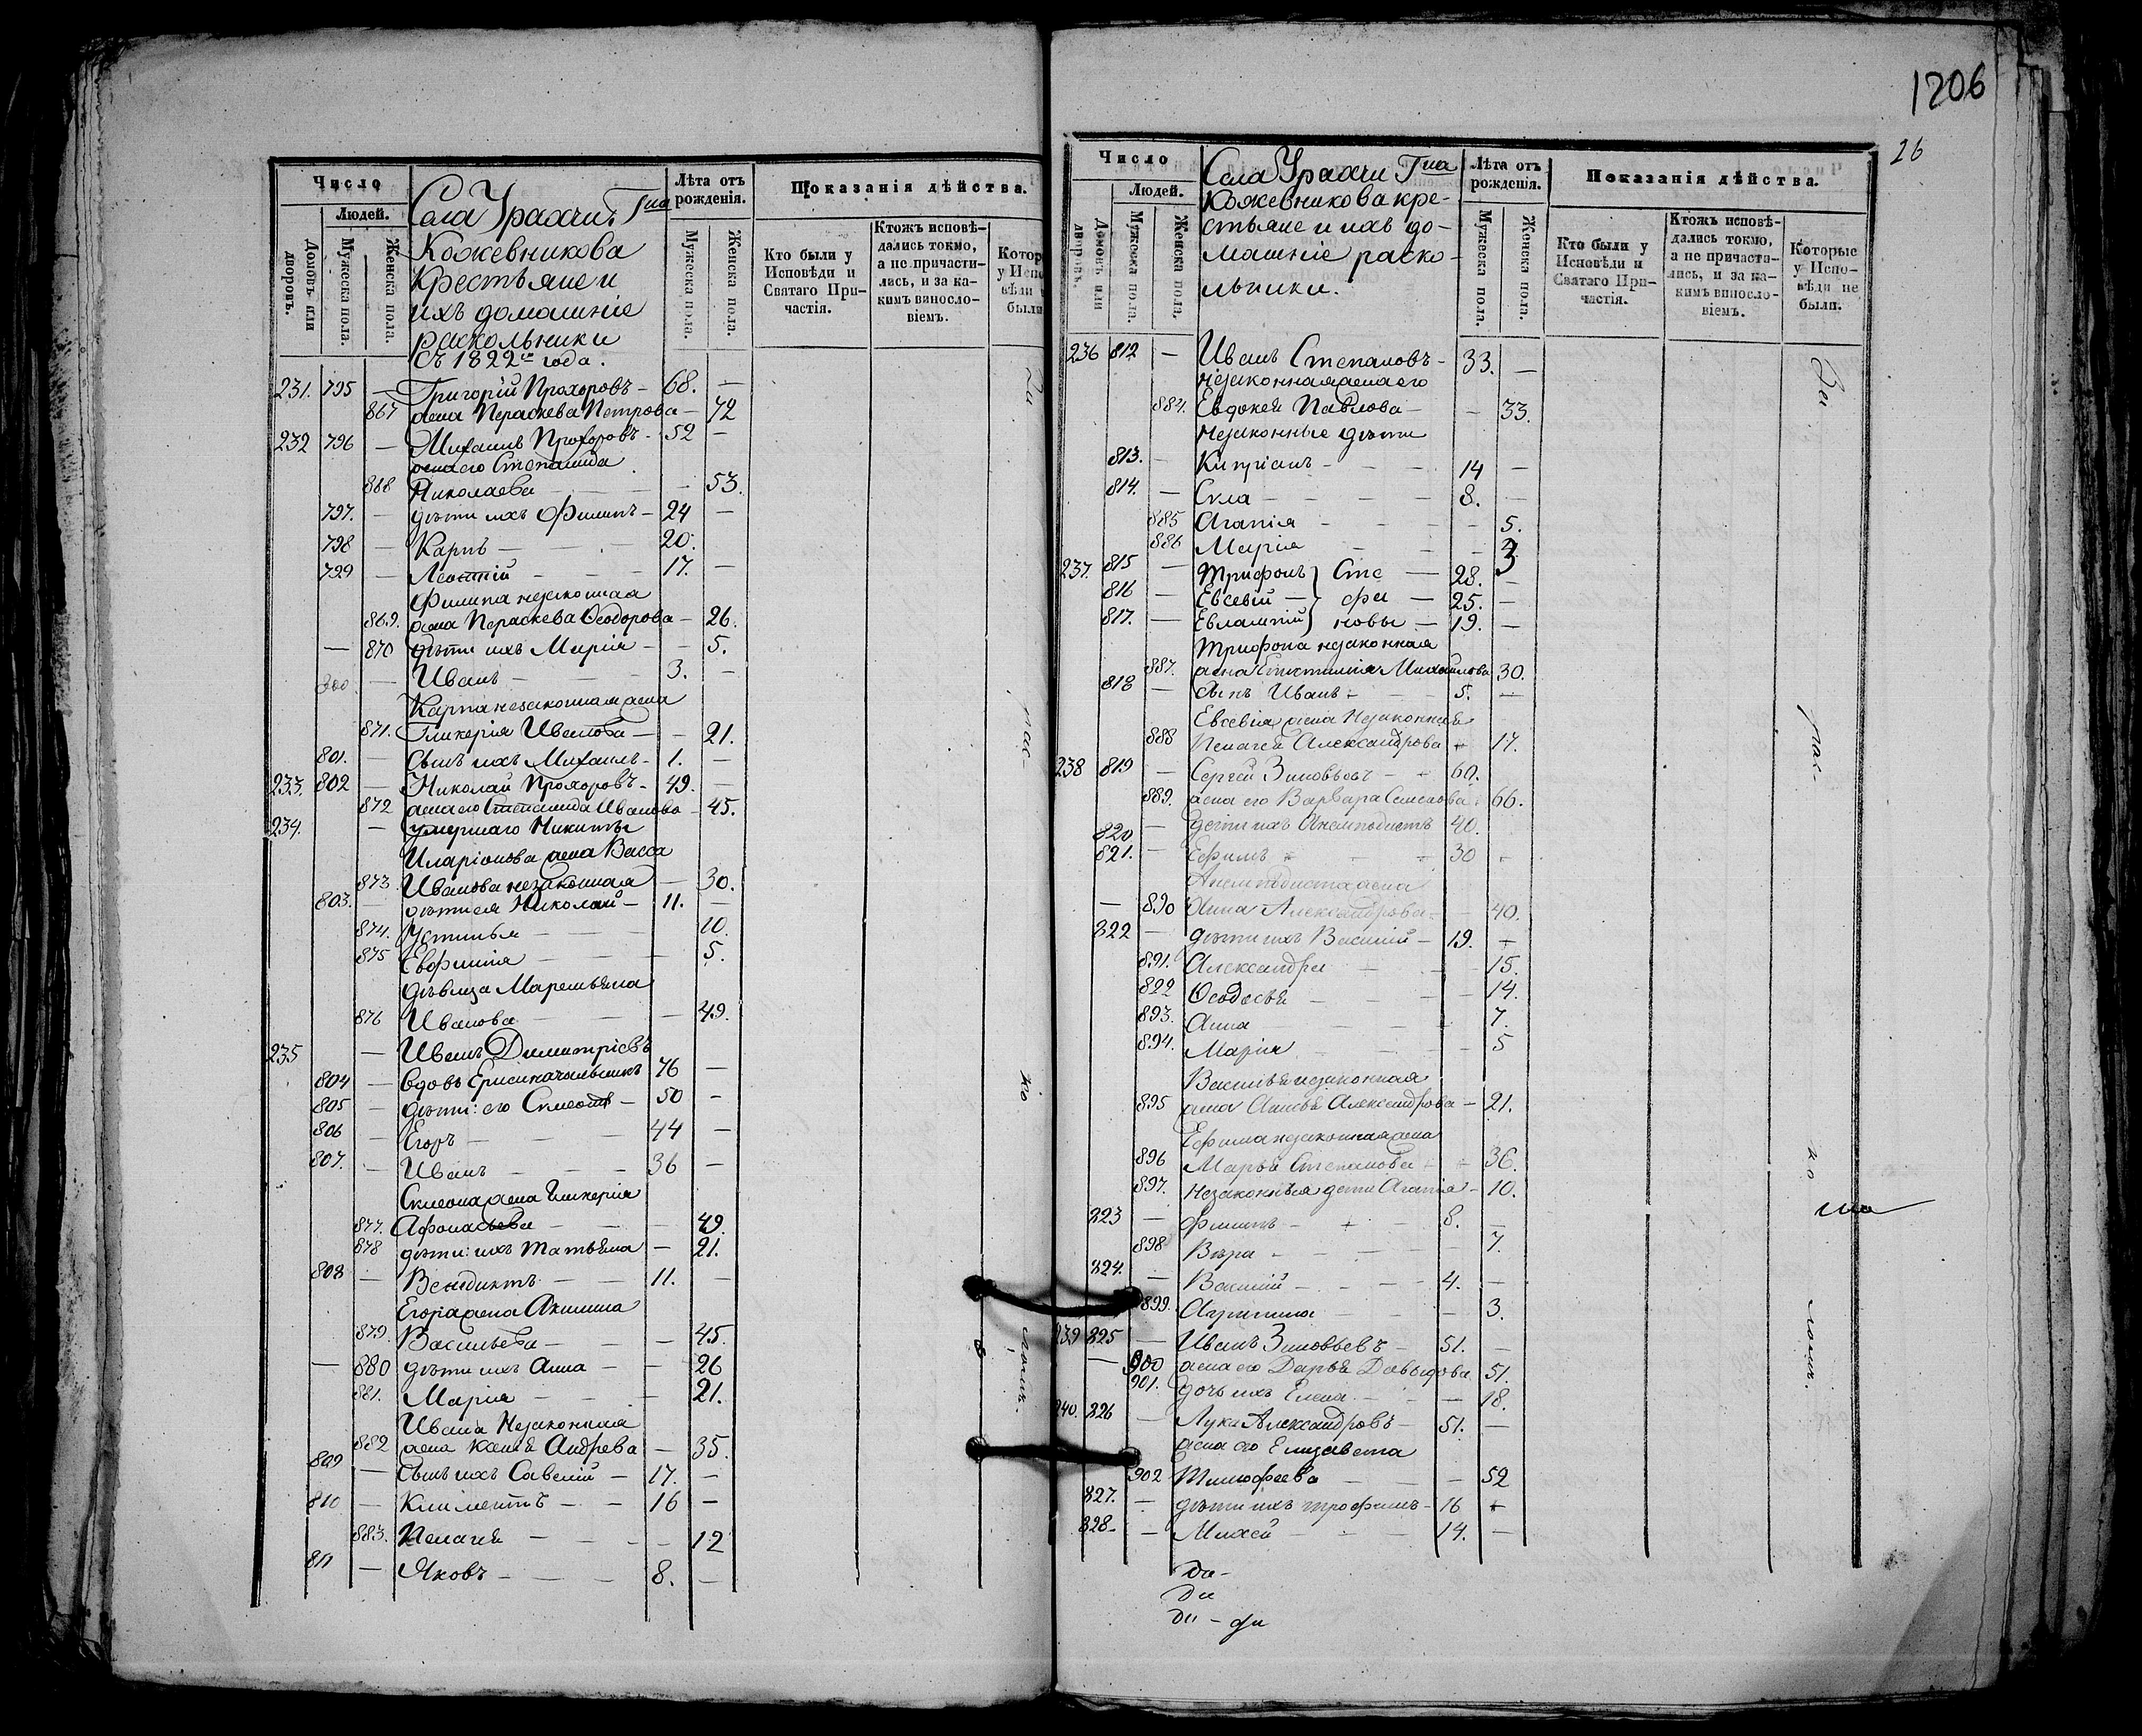 1206
26
Число
Людей.
Домовъ или дворовъ.
Мужеска пола.
Женска пола.
Села Урахчи Гна
Кожевникова
Крестьяне и
ихъ домашніе
раскольники
съ 1822го года.
Лѣта отъ рожденія.
Мужеска пола.
Женска пола.
Показанія дѣйства.
Кто были у Исповѣди и Святаго Причастія.
Ктожъ исповѣдались токмо, а не причастились, и за какимъ винословіемъ.
Котор
у Испо
вѣди
были
231. 795 — Григорій Прохоровъ — 68. —
867 жена Параскева Петрова — 72
232 796 — Михаилъ Прохоровъ — 52 —
жена его Степанида
868 Николаева — 53.
797. — дѣти ихъ Филипъ — 24 —
798 — Карпъ — 20.
799 — Леонтій — 17. —
Филипа незаконная
869. жена Параскева Ѳеодорова — 26.
— 870 дѣти ихъ Марія — 5.
800. — Иванъ — 3. —
Карпа незаконная жена
871. Гликерія Иванова — 21.
801. — Сынъ ихъ Михаилъ — 1. —
233. 802 — Николай Прохоровъ — 49. —
872 жена его Степанида Иванова — 45.
234. — умершаго Никиты
Иларіонова жена Васса
873 Иванова незаконная — 30.
803. — дѣти ея Николай — 11. —
874. Устинья — 10.
875 Евфимія — 5.
дѣвица Маремьяна
876 Иванова — 49.
235 — Иванъ Димитріевъ
804 — вдовъ 76 —
805 — дѣти: его Симеонъ — 50 —
806 — Егоръ — 44 —
807. — Иванъ — 36 —
Симеона жена Гликерія
877. Афонасьева — 49.
878 дѣти: ихъ Татьяна — 21.
808 — Венедиктъ — 11. —
Егора жена Акилина
879. Васильева — 45.
— 880 дѣти ихъ Анна — 26
881. Марія — 21.
Ивана Незаконная
882 жена Ксенья Андрева — 35.
809 — Сынъ ихъ Савелій — 17. —
810 — Климентъ — 16 —
883. Пелагея — 12
811 — Яковъ — 8. —
Число
Людей.
Домовъ или дворовъ.
Мужеска пола.
Женска пола.
Села Урахчи Гна
Кожевникова кре-
стьяне и ихъ до-
машніе раско-
льники.
Лѣта отъ рожденія.
Мужеска пола.
Женска пола.
Показанія дѣйства.
Кто были у Исповѣди и Святаго Причастія.
Ктожъ исповѣдались токмо, а не причастились, и за какимъ винословіемъ.
Которые у Исповѣди не были.
236 812 — Иванъ Степановъ — 33. —
незаконная жена его
884. Евдокея Павлова — 33.
Незаконные дѣти
813. — Кипріанъ — 14 —
814. — Сила — 8. —
885 Агапія — 5.
886 Марія — 3
237. 815 — Трифонъ } Сте — 28. —
816 — Евсевій — } фа — 25. —
817. — Евлампій } новы — 19. —
Трифона незаконная
887. жена Михайлова 30.
818 — Сынъ Иванъ — 5. —
Евсевія жена Незаконная
888 Пелагея Александрова — 17.
238 819 — Сергей Зиновьевъ — 60.
889. жена его Варвара Семенова 66.
820 — дети ихъ Анемподистъ 40.
821. — Ефимъ — 30 —
Анемподиста жена
— 890 Анна Александрова — 40.
822 — дѣти ихъ Василій — 19. —
891. Александра — 15.
892 Ѳеодосья — 14.
893. Анна — 7.
894. Марія — 5
Василья незаконная
895 жена Анисья Александрова — 21.
Ефима незаконная жена
896 Марья Степанова — 36.
897. Незаконныя дети Агапія — 10.
823 — Филипъ — 8. —
898 Вѣра — 7.
824. — Василій — 4. —
899. Агрипина — 3.
239 825 — Иванъ Зиновьевъ — 51. —
— 900 жена его Дарья Давыдова 51.
901. дочь ихъ Елена — 18.
240. 826 — Лука Александровъ — 51. —
жена его Елизавета
902 Тимофеева — 52
827. — дѣти ихъ Трофимъ — 16 —
828 — Михей — 14. —